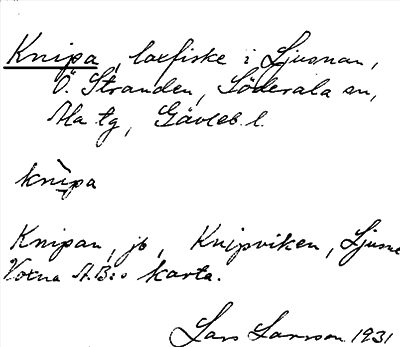 Knipa, laxfiske i Ljusnan,
Ö. Stranden, Söderala sn,
Ala tg, Gävleb. l.
knìpa
Knipan, jb, Knipviken, Ljusne
Voxna A.B:s karta.
Lars Larsson 1931